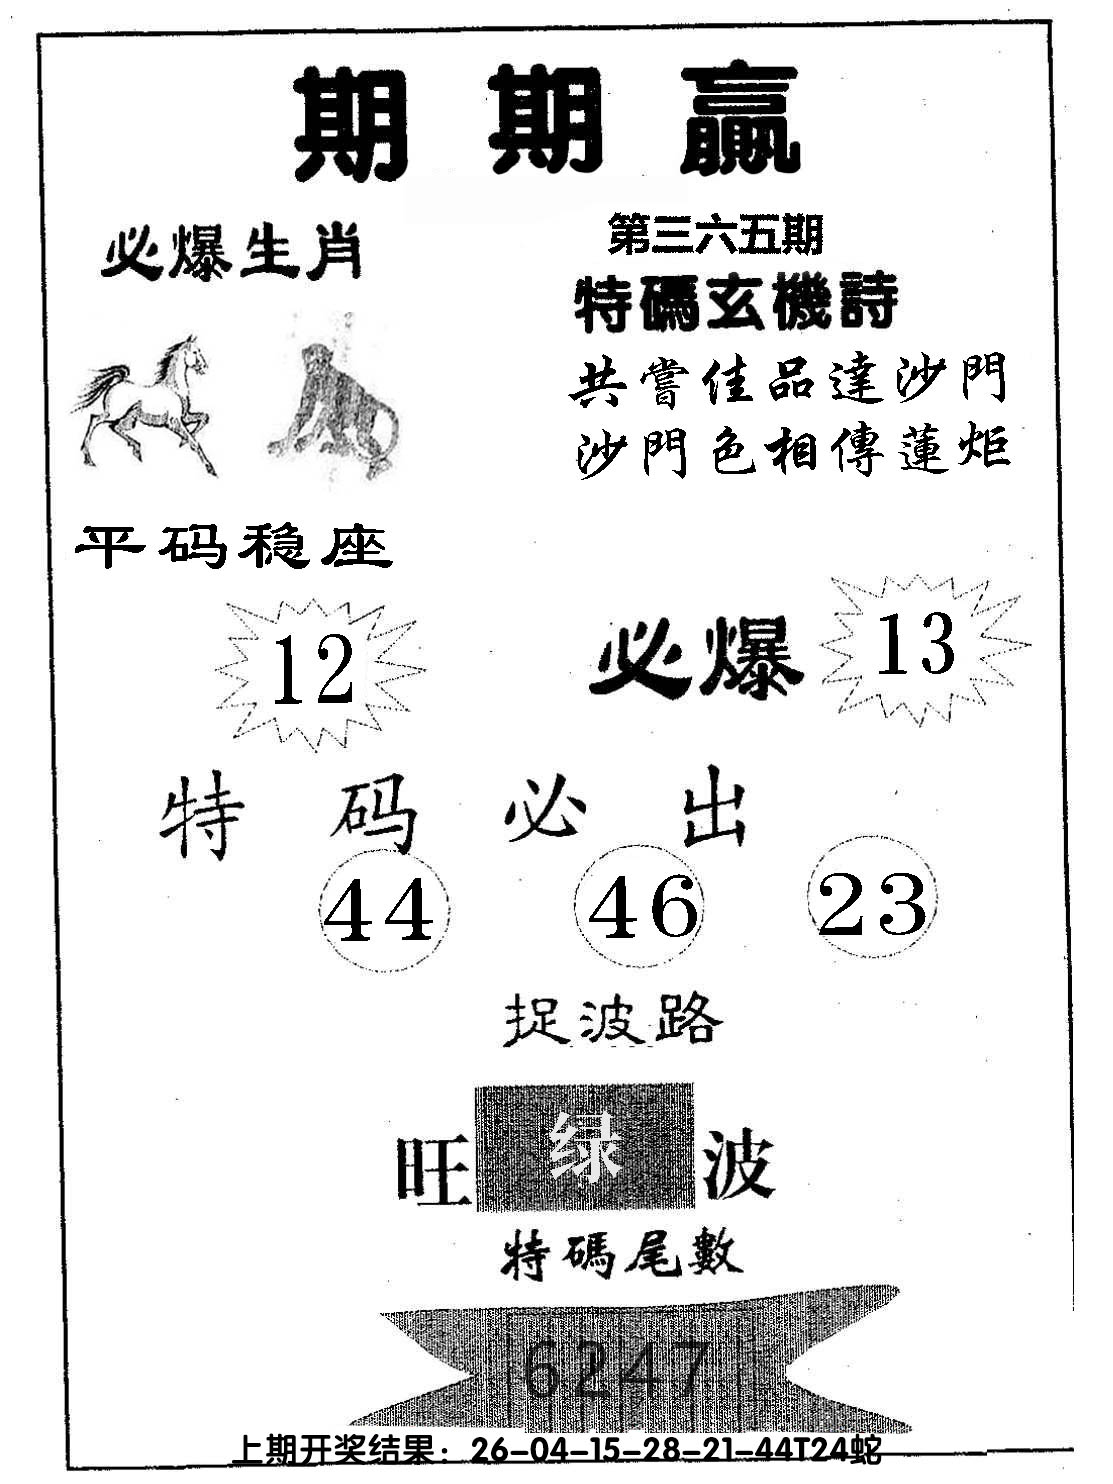 期期赢
必爆生肖
第三六五期
特碼玄機詩
共嘗佳品達沙門
沙門色相傳蓮炬
平码稳座
12
必爆 13
特码必出
44 46 23
捉波路
旺绿波
特碼尾數
6247
上期开奖结果：26-04-15-28-21-44T24蛇